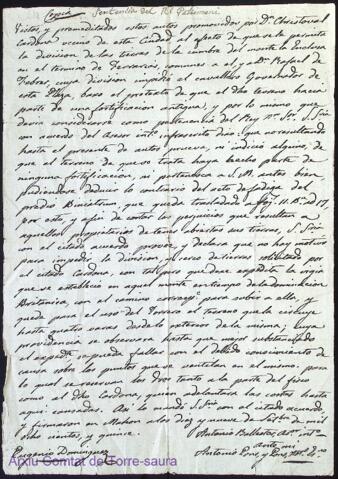 Copia Sentencia del Rl Patrimoni
Vistos, y premeditados estos autos promovidos por Dn Christoval
Cardona vecino de esta Ciudad al efeto de que se le permita
la division de las tierras de la cumbre del monte la Enclusa
en el termino de Ferrerias, comunes a el, y a Dn Rafael de
Febrer cuya division impidió el cavallero Governador de
esta Plaza, baxo el protexto de que el dho terreno hacia
parte de una fortificacion antigua, y por lo mismo que
devia considerarse como pertenencia del Rey nro Sr. S. Sria
con acuerdo del Asesor into infrascrito dixo: que no resultando
hasta el presente de autos prueva, ni indicio alguno, de
que el terreno de que se trata haya hecho parte de
ninguna fortificacion, ni pertenezca a S.M. antes bien
pudiendose deducir lo contrario del acto de
predio Biniatrum, que queda trasladado a foj. 11. Bo. ad 17,
por esto, y a fin de cortar los perjuicios que resultan a
aquellos proprietarios de tener abiertas sus tierras, S. Sria
con el citado acuerdo proveé, y declara que no hay motivo
para impedir la division, y cierro de tierras solicitado por
el citado Cardona, con tal pero que dexe expedita la vigia
que se estableció en aquel monte en tiempo de la dominacion
Britanica, con el camino para subir a ella, y
quede para el uso del Torrero el terreno que la circuye
hasta quatro varas desde lo exterior de la misma; cuya
providencia se observará hasta que mejor substanciado
el expedte se pueda fallar con el devido conocimiento de
causa sobre los puntos que se ventilan en el mismo, para
lo qual se reservan los Dros tanto a la parte del fisco
como al dho Cardona, quien adelantará las costas hasta
aqui causadas. Asi lo mandó S. Sria con el citado acuerdo
y firmaron en Mahon a los diez y nueve de Setbre de mil
ocho cientos, y quince.
Antonio Ballester
Eugenio Dominguez
Ante mi
Antonio Pons y Pons
Arxiu Comtat de Torre-saura